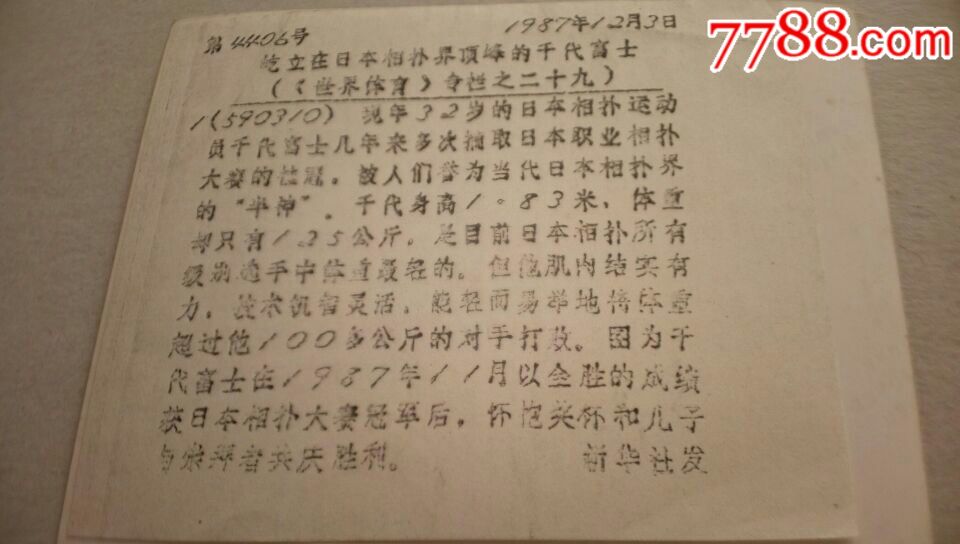 7788.com
第4406号 1987年12月3日
屹立在日本相扑界顶峰的千代富士
(《世界体育》专栏之二十九)
1(590310) 现年32岁的日本相扑运动
员千代富士几年来多次摘取日本职业相扑
大赛的桂冠。被人们誉为当代日本相扑界
的“半神”。千代身高1.83米,体重
却只有125公斤。是目前日本相扑所有
级别选手中体重最轻的。但他肌肉结实有
力,技术机智灵活,能轻而易举地将体重
超过他100多公斤的对手打败。图为千
代富士在1987年11月以全胜的成绩
获日本相扑大赛冠军后,怀抱奖杯和儿子
与崇拜者共庆胜利。 新华社发